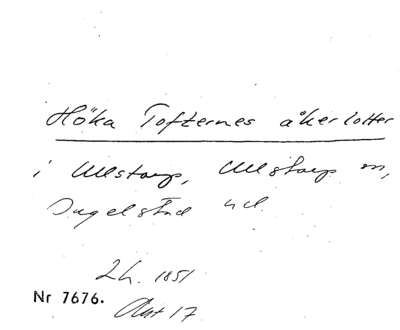 Höka Tofternes åkerlotter
i Ullstorp, Ullstorp sn,
Ingelstad hd.
Lh. 1851
Nr 7676.
Akt 17